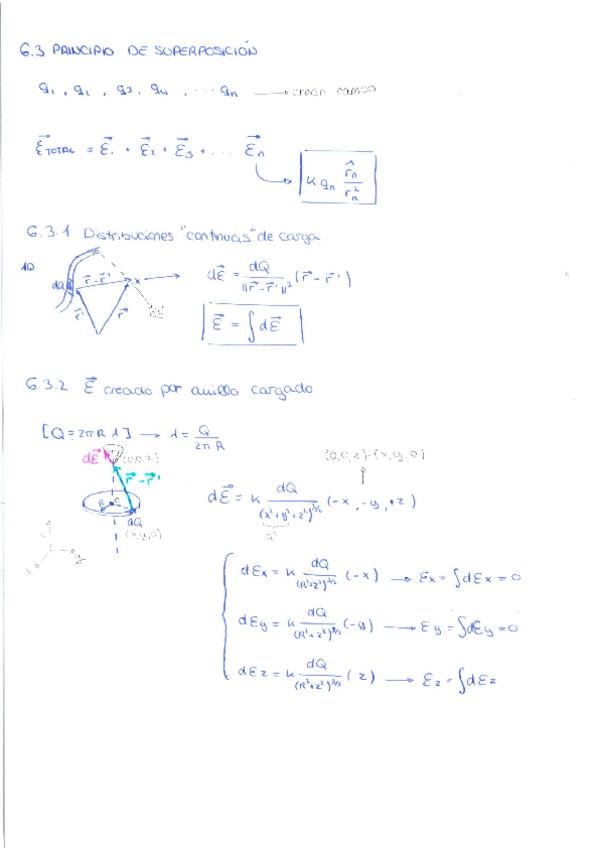 6.3 PRINCIPIO DE SUPERPOSICIÓN
q₁, q₂, q₃, q₄, ... qₙ → crean campo
ε⃗TOTAL = ε⃗₁ + ε⃗₂ + ε⃗₃ + ... ε⃗ₙ → k qₙ r̂ₙ/rₙ²
6.3.1 Distribuciones "continuas" de carga
1D dQ r⃗-r⃗' x r⃗' r⃗ dε⃗
dε⃗ = dQ/||r⃗-r⃗'||³ (r⃗-r⃗')
ε⃗ = ∫dε⃗
6.3.2 ε⃗ creado por anillo cargado
[Q=2πRλ] → λ = Q/2πR
dε⃗ (0,0,z) r⃗-r⃗' (0,0,z)-(x,y,0)
R dQ (x,y,0) y
dε⃗ = k dQ/(x²+y²+z²)^3/2 (-x, -y, +z)
dεx = k dQ/(R²+z²)^3/2 (-x) → εx = ∫dεx = 0
dεy = k dQ/(R²+z²)^3/2 (-y) → εy = ∫dεy = 0
dεz = k dQ/(R²+z²)^3/2 (z) → εz = ∫dεz